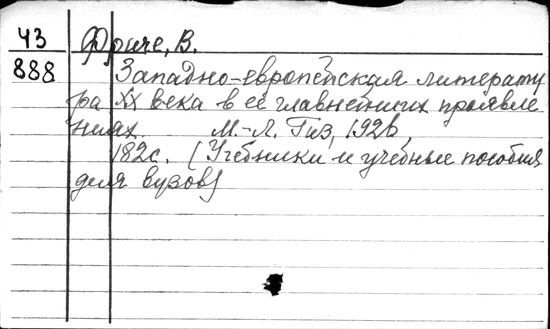 Ч3 Фриче, В.
888 Западно-европейская литерату
ра XX века в её главнейших проявле
ниях. М.-Л. Гиз, 1926,
182с. (Учебники и учебные пособия
для вузов)